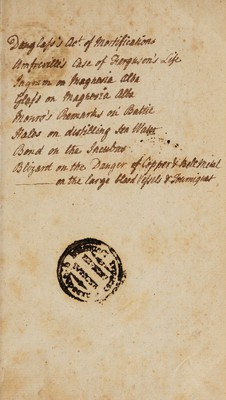 Douglass's Act. of Mortifications
Umfreville's Case of Ferguson's Life
Ingram on Magnesia Alba
Glass on Magnesia Alba
Monro's Remarks on Battie
Hales on distilling Sea Water
Bond on the Incubus
Blizard on the Danger of Copper &
on the large blood Vessels &